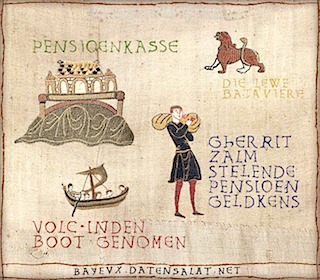 PENSIOENKASSE
DIE LEWE
BATAVIERE
GHERRIT
ZALM
STELENDE
PENSIOEN
GELDKENS
VOLC·INDEN
BOOT GENOMEN
BAYEUX·DATENSALAT·NET